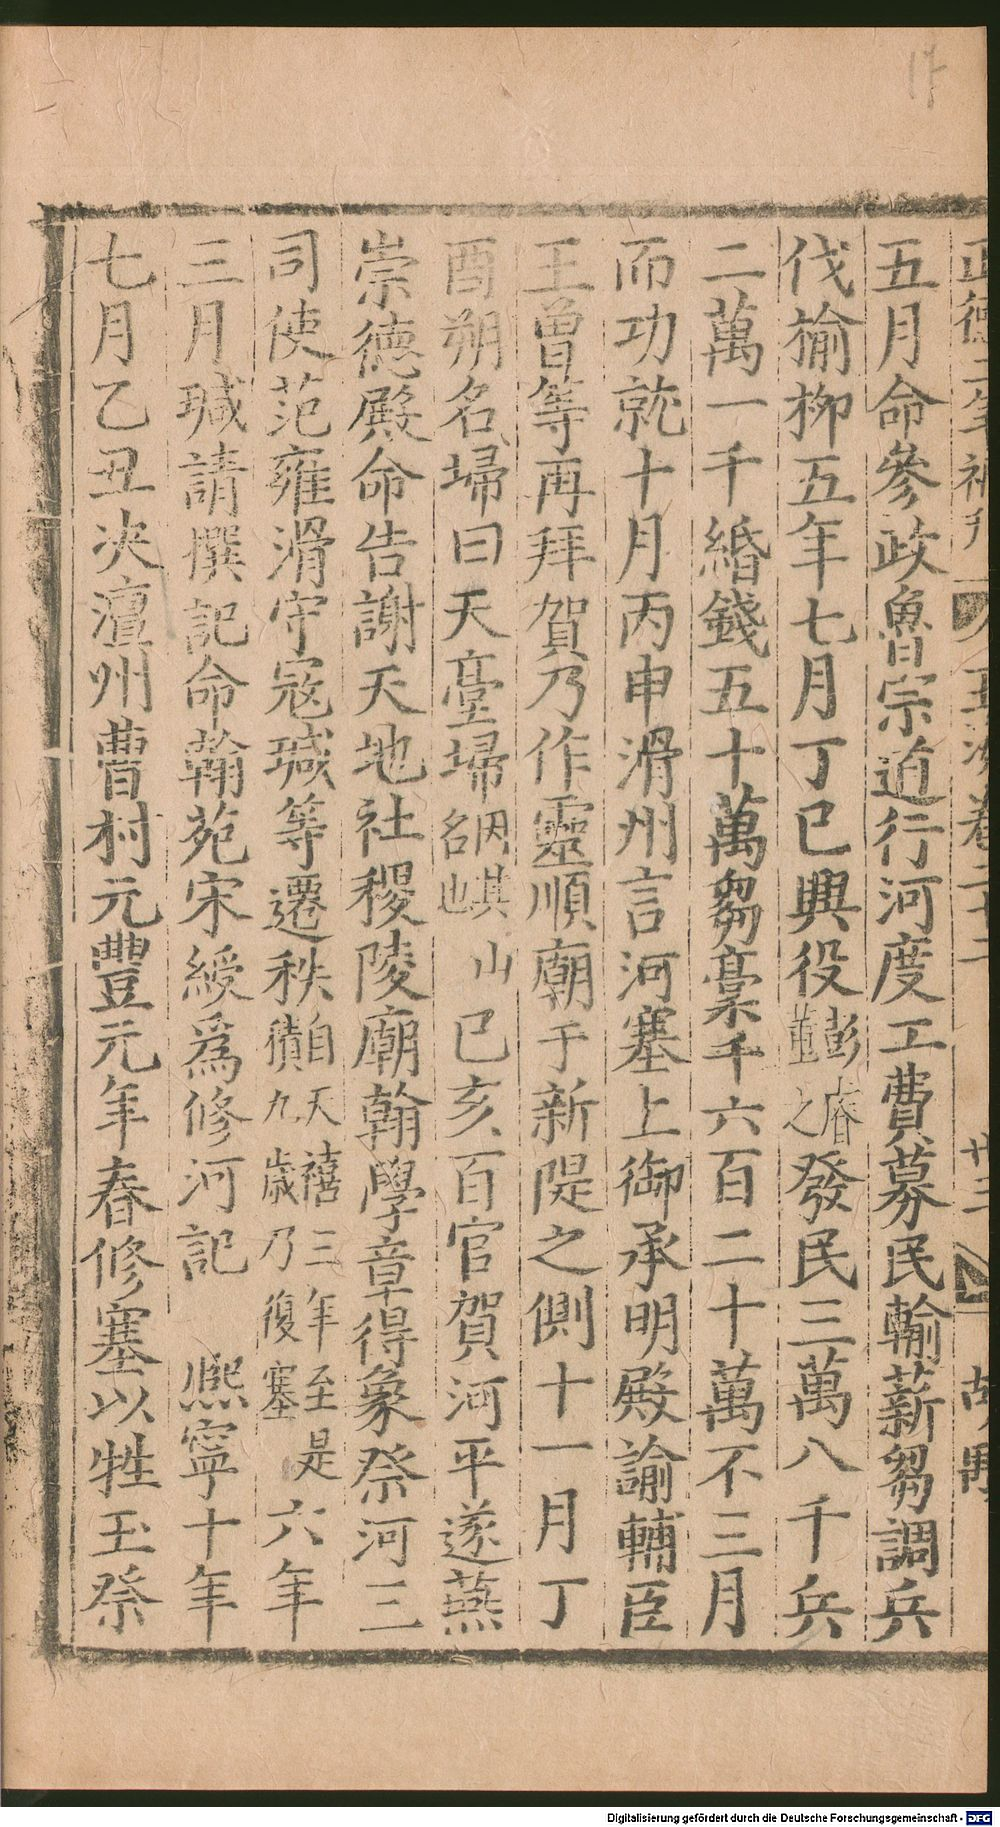 五月命參政魯宗道行河度工費募民輸薪芻調兵
伐榆柳五年七月丁巳興役彭睿董之發民三萬八千兵
二萬一千緡錢五十萬芻稾千六百二十萬不三月
而功就十月丙申滑州言河塞上御承明殿諭輔臣
王曾等再拜賀乃作靈順廟于新隄之側十一月丁
酉朔名埽曰天臺埽因其山名也己亥百官賀河平遂燕
崇德殿命告謝天地社稷陵廟翰學章得象祭河三
司使范雍滑守寇瑊等遷秩自天禧三年至是積九歲乃復塞六年
三月瑊請撰記命翰苑宋綬為修河記 熈寧十年
七月乙丑决澶州曹村元豐元年春修塞以牲玉祭
Digitalisierung gefördert durch die Deutsche Forschungsgemeinschaft - DFG